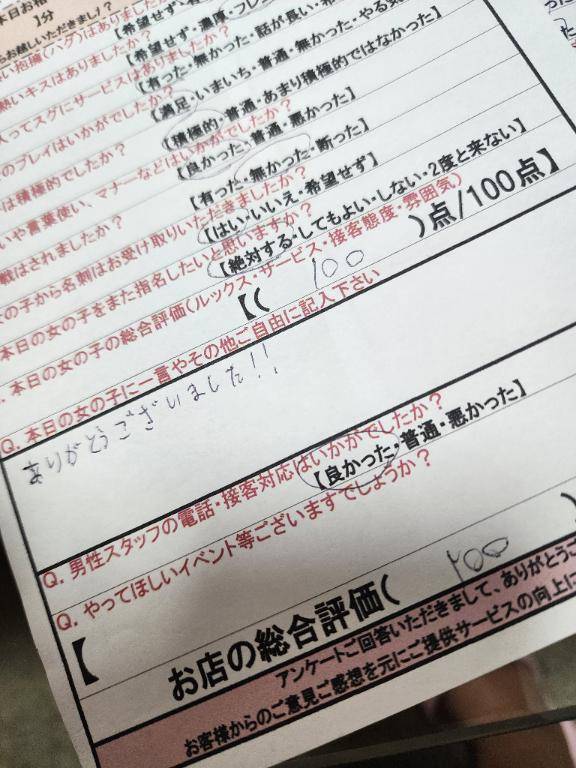 】分
【希望せず・
い抱擁(ハグ)はありました
【希望せず・濃厚・フレ
熱いキスはありましたか?
【有った・無かった・話が長い・
入ってスグにサービスはありましたか?
【満足・いまいち・普通・無かった・やる気
のプレイはいかがでしたか?
【積極的・普通・あまり積極的ではなかった】
は積極的でしたか?
【良かった・普通・悪かった】
いや言葉使い、マナーなどはいかがでしたか?
【有った・無かった・断った】
戦はされましたか?
【はい・いいえ・希望せず】
の子から名刺はお受け取りいただきましたか?
【絶対する・してもよい・しない・2度と来ない】
本日の女の子をまた指名したいと思いますか?
本日の女の子の総合評価(ルックス・サービス・接客態度・雰囲気)
【( 100 )点/100点】
Q. 本日の女の子に一言やその他ご自由に記入下さい
ありがとうございました!!
Q. 男性スタッフの電話・接客対応はいかがでしたか?
【良かった・普通・悪かった】
Q. やってほしいイベント等ございますでしょうか?
【
お店の総合評価( 100 )
アンケートご回答いただきまして、ありがとうご
お客様からのご意見ご感想を元にご提供サービスの向上に